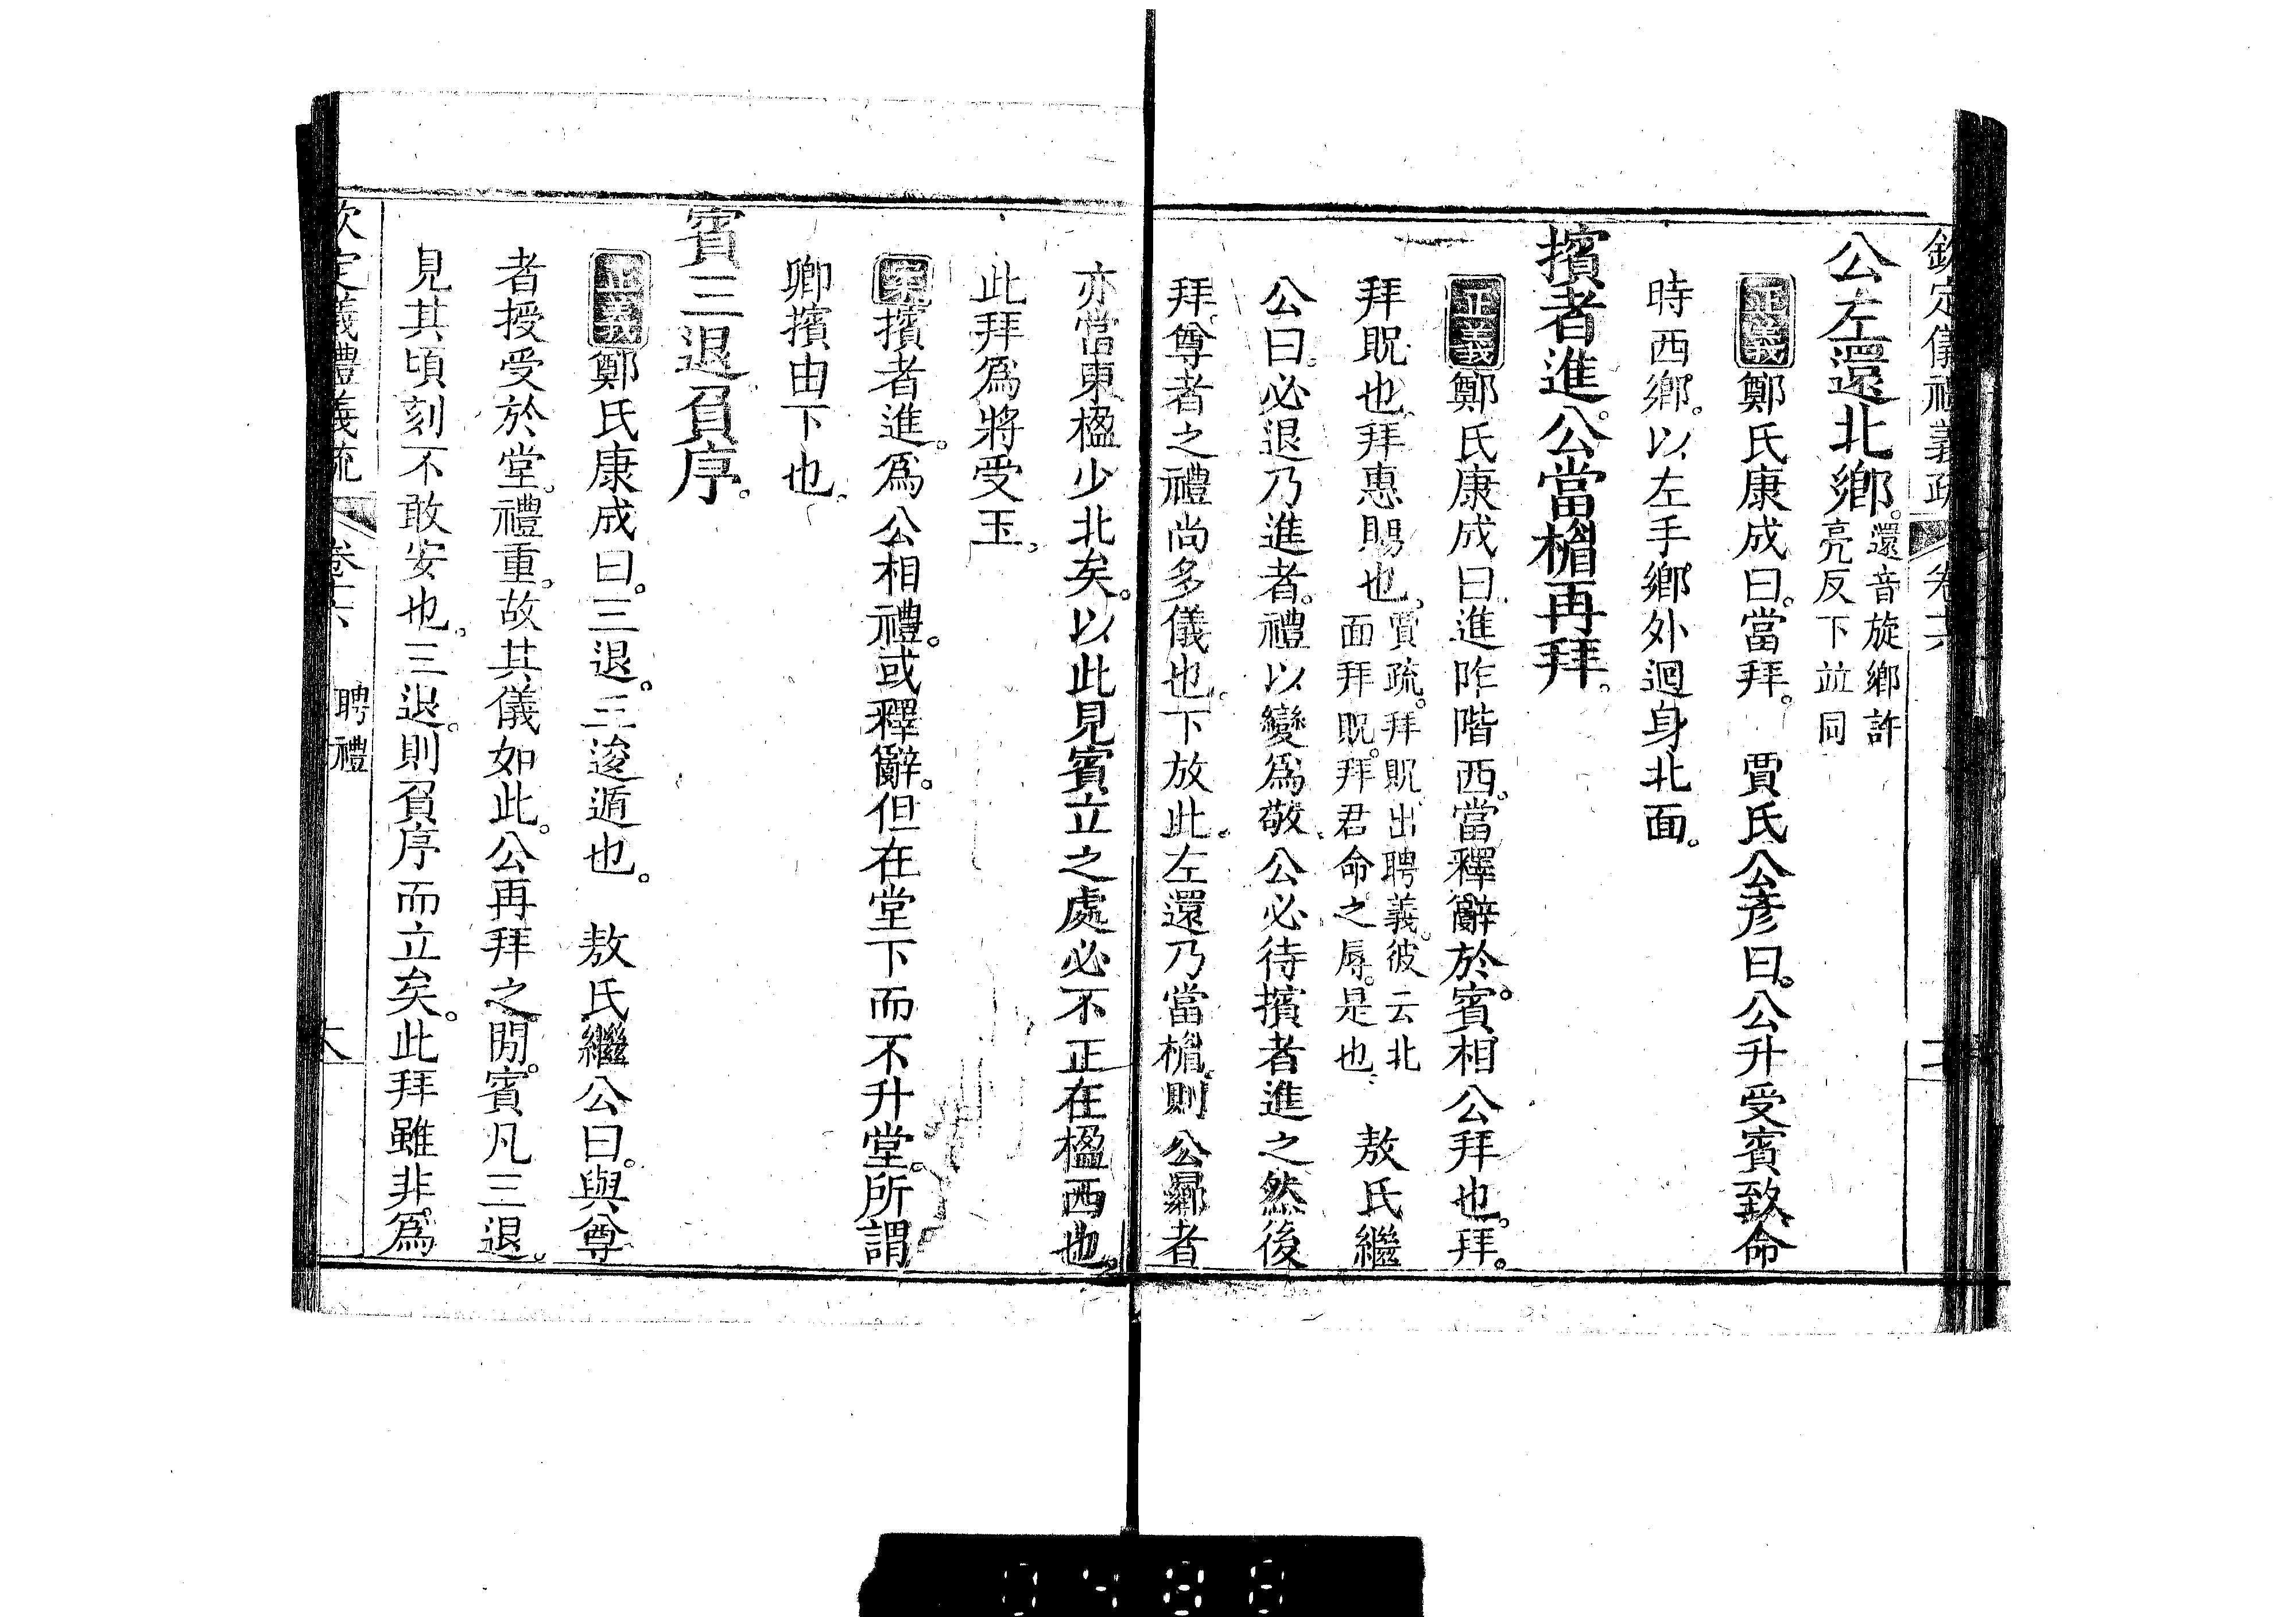 欽定儀禮義疏 卷十六
公左還北鄉。還音旋鄉許亮反下竝同
正義鄭氏康成曰。當拜。 賈氏公彥曰。公升受賓致命
時西鄉。以左手鄉外迴身北面。
擯者進。公當楣再拜。
正義鄭氏康成曰。進阼階西。當釋辭於賓。相公拜也。拜。
拜貺也。拜惠賜也。賈疏。拜貺。出聘義。彼云北面拜貺。拜君命之辱。是也。 敖氏繼
公曰。必退乃進者。禮以變爲敬。公必待擯者進之然後
拜。尊者之禮尚多儀也。下放此。左還乃當楣。則公曏者
亦當東楹少北矣。以此見賓立之處必不正在楹西也。
此拜爲將受玉。
案擯者進。爲公相禮。或釋辭。但在堂下而不升堂。所謂
卿擯由下也。
賓三退負序。
正義鄭氏康成曰。三退。三逡遁也。 敖氏繼公曰。與尊
者授受於堂。禮重。故其儀如此。公再拜之閒。賓凡三退。
見其頃刻不敢安也。三退。則負序而立矣。此拜雖非。爲
欽定儀禮義疏 卷十六 聘禮
0488